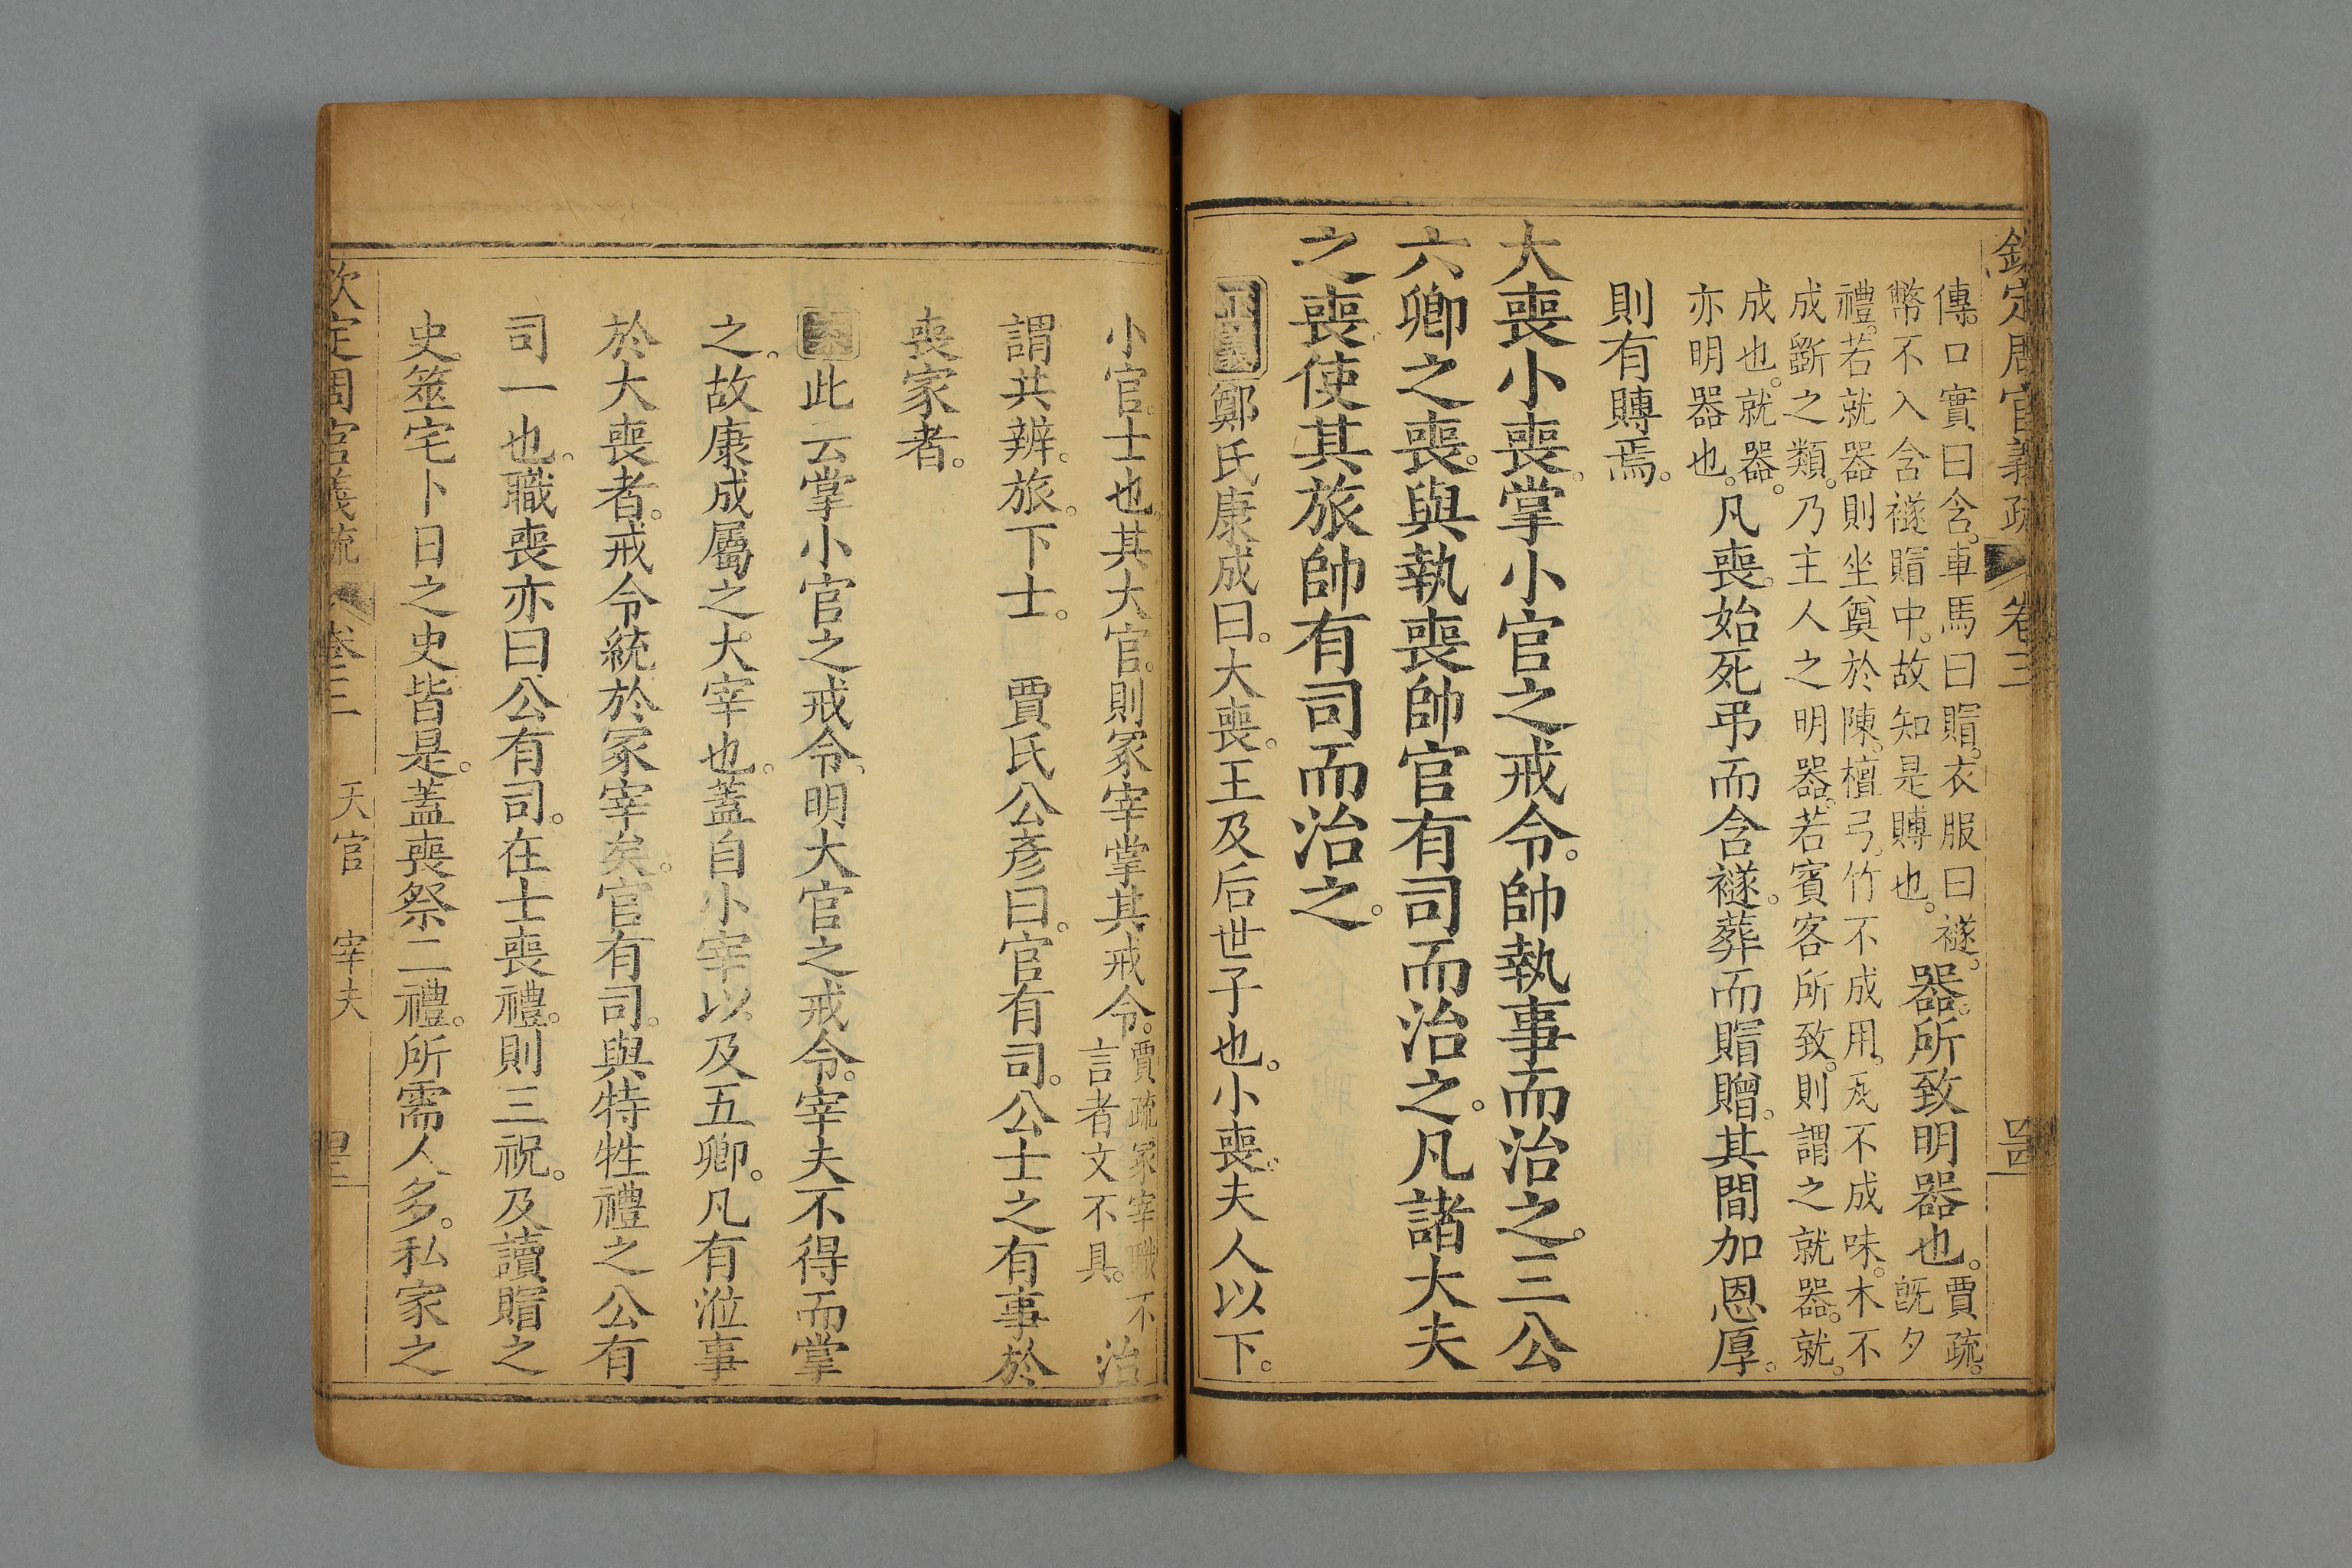 欽定周官義疏 卷三
傳。口實曰含。車馬曰賵。衣服曰襚。
幣不入含襚賵中。故知是賻也。
器。所致明器也。
賈疏。
既夕
禮。若就器則坐奠於陳。檀弓。竹不成用。瓦不成味。木不
成斵之類。乃主人之明器。若賓客所致。則謂之就器。就。
成也。就器。
亦明器也。
凡喪。始死弔而含襚。葬而賵贈。其間加恩厚。
則有賻焉。
大喪小喪。掌小官之戒令。帥執事而治之。三公
六卿之喪。與執喪帥官有司而治之。凡諸大夫
之喪。使其旅帥有司而治之。
正義鄭氏康成曰。大喪。王及后世子也。小喪。夫人以下。
小官。士也。其大官。則冢宰掌其戒令。
賈疏。冢宰職不
言者文不具。
治
謂共辨。旅。下士。 賈氏公彥曰。官有司。公士之有事於
喪家者。
案此云掌小官之戒令。明大官之戒令。宰夫不得而掌
之。故康成屬之大宰也。蓋自小宰以及五卿。凡有涖事
於大喪者。戒令統於冢宰矣。官有司。與特牲禮之公有
司一也。職喪亦曰公有司。在士喪禮。則三祝。及讀賵之
史。筮宅卜日之史皆是。蓋喪祭二禮。所需人多。私家之
欽定周官義疏 卷三 天官 宰夫